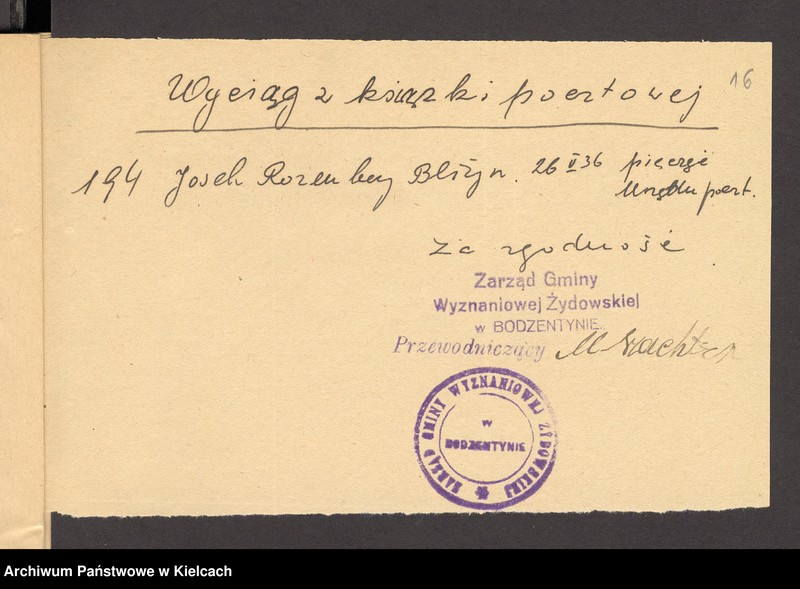 16
Wyciąg z książki pocztowej
194 Josek Rozenberg Bliżyn. 26 V 36 pieczęć
Urzędu poczt.
Za zgodność
Zarząd Gminy
Wyznaniowej Żydowskiej
w BODZENTYNIE.
Przewodniczący M
ZARZĄD GMINY WYZNANIOWEJ ŻYDOWSKIEJ
w
BODZENTYNIE
Archiwum Państwowe w Kielcach